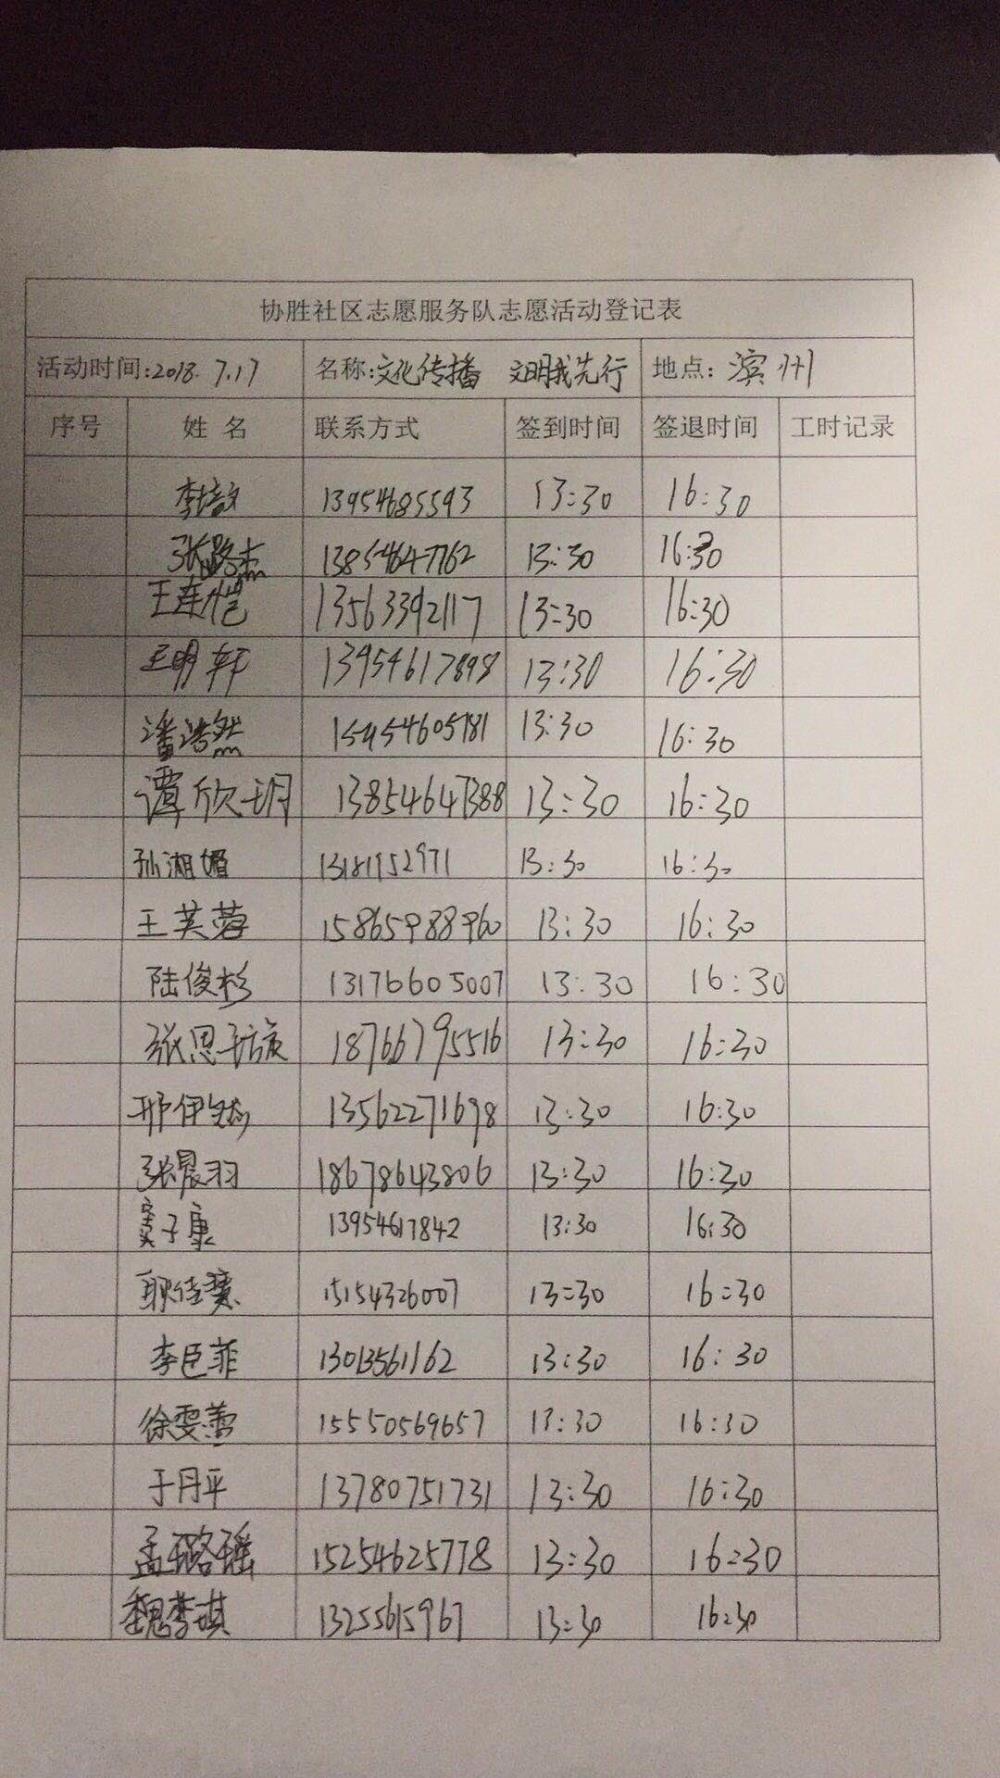 协胜社区志愿服务队志愿活动登记表
活动时间:2018.7.17 名称:文化传播 文明我先行 地点:滨州
序号 姓名 联系方式 签到时间 签退时间 工时记录
李培文 13954685593 13:30 16:30
张路杰 13854647762 13:30 16:30
王连恺 13563392117 13:30 16:30
王明轩 13954617898 13:30 16:30
潘浩然 15954605781 13:30 16:30
谭欣玥 13854647388 13:30 16:30
孙湘媚 13181952971 13:30 16:30
王芙蓉 15865988960 13:30 16:30
陆俊杉 13176605007 13:30 16:30
张思璇 18766795516 13:30 16:30
邢伊然 13562271698 13:30 16:30
张晨羽 18678643806 13:30 16:30
窦子康 13954617842 13:30 16:30
耿佳慧 15154326007 13:30 16:30
李臣菲 13013561162 13:30 16:30
徐雯蕾 15550569657 13:30 16:30
于月平 13780751731 13:30 16:30
孟璐瑶 15254625778 13:30 16:30
魏李琪 13255615967 13:30 16:30